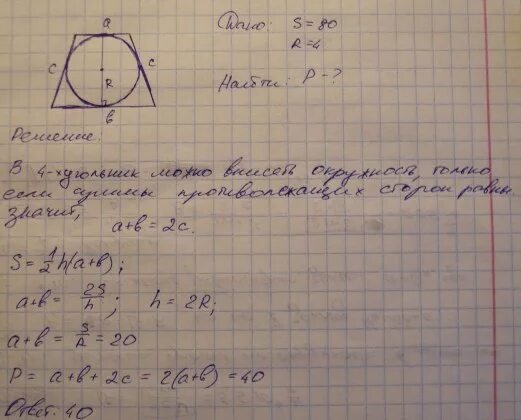 a
c
c
R
b
Дано: S = 80
R = 4
Найти: P - ?
Решение:
В 4-хугольник можно вписать окружность, только
если суммы противолежащих сторон равны
значит,
a+b = 2c.
S = 1/2 h(a+b);
a+b = 2S/h ; h = 2R;
a+b = S/R = 20
P = a+b+2c = 2(a+b) = 40
Ответ: 40